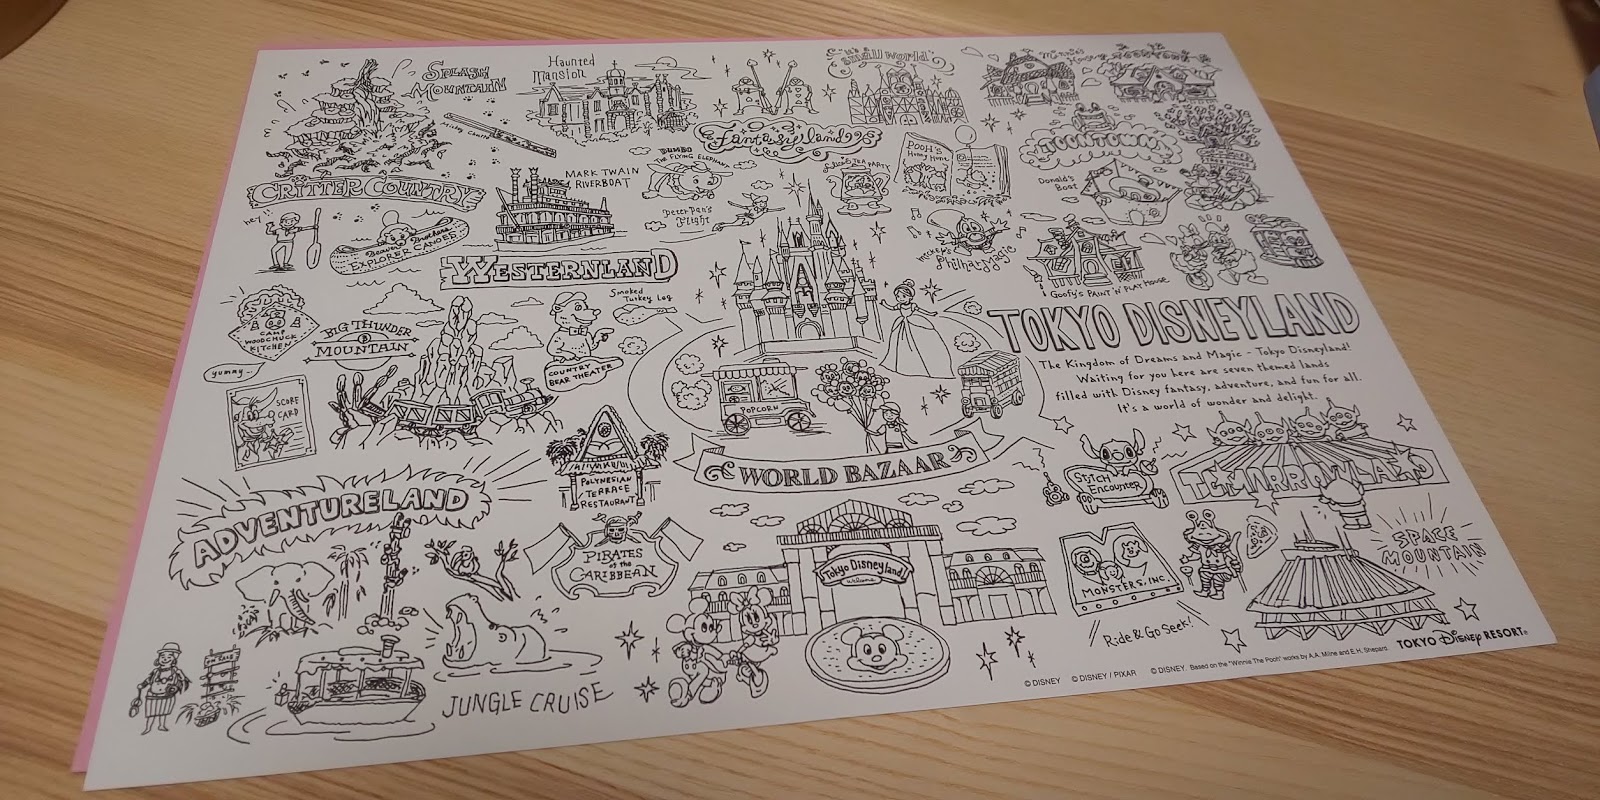 SPLASH
MOUNTAIN
Haunted
Mansion
it's a
small world
Minnie's
House
Mickey Churro
Fantasyland
TOONTOWN
CRITTER COUNTRY
MARK TWAIN
RIVERBOAT
DUMBO
THE FLYING ELEPHANT
Peter Pan's
Flight
TEA PARTY
POOH'S
Hunny Hunt
Donald's
Boat
hey!!
Beaver Brothers
EXPLORER CANOES
WESTERNLAND
Mickey's
PhilharMagic
Goofy's PAINT 'N' PLAY HOUSE
CAMP
WOODCHUCK
KITCHEN
yummy
BIG THUNDER
MOUNTAIN
Smoked
Turkey Leg
COUNTRY
BEAR THEATER
SCORE
CARD
POPCORN
TOKYO DISNEYLAND
The Kingdom of Dreams and Magic - Tokyo Disneyland!
Waiting for you here are seven themed lands
filled with Disney fantasy, adventure, and fun for all.
It's a world of wonder and delight.
WORLD BAZAAR
POLYNESIAN
TERRACE
RESTAURANT
STITCH
ENCOUNTER
TOMORROWLAND
ADVENTURELAND
PIRATES
of the
CARIBBEAN
Tokyo Disneyland
welcome
MONSTERS, INC.
Ride & Go Seek!
SPACE
MOUNTAIN
JUNGLE CRUISE
TOKYO Disney RESORT®
© DISNEY © DISNEY / PIXAR © DISNEY. Based on the "Winnie The Pooh" works by A.A. Milne and E.H. Shepard.